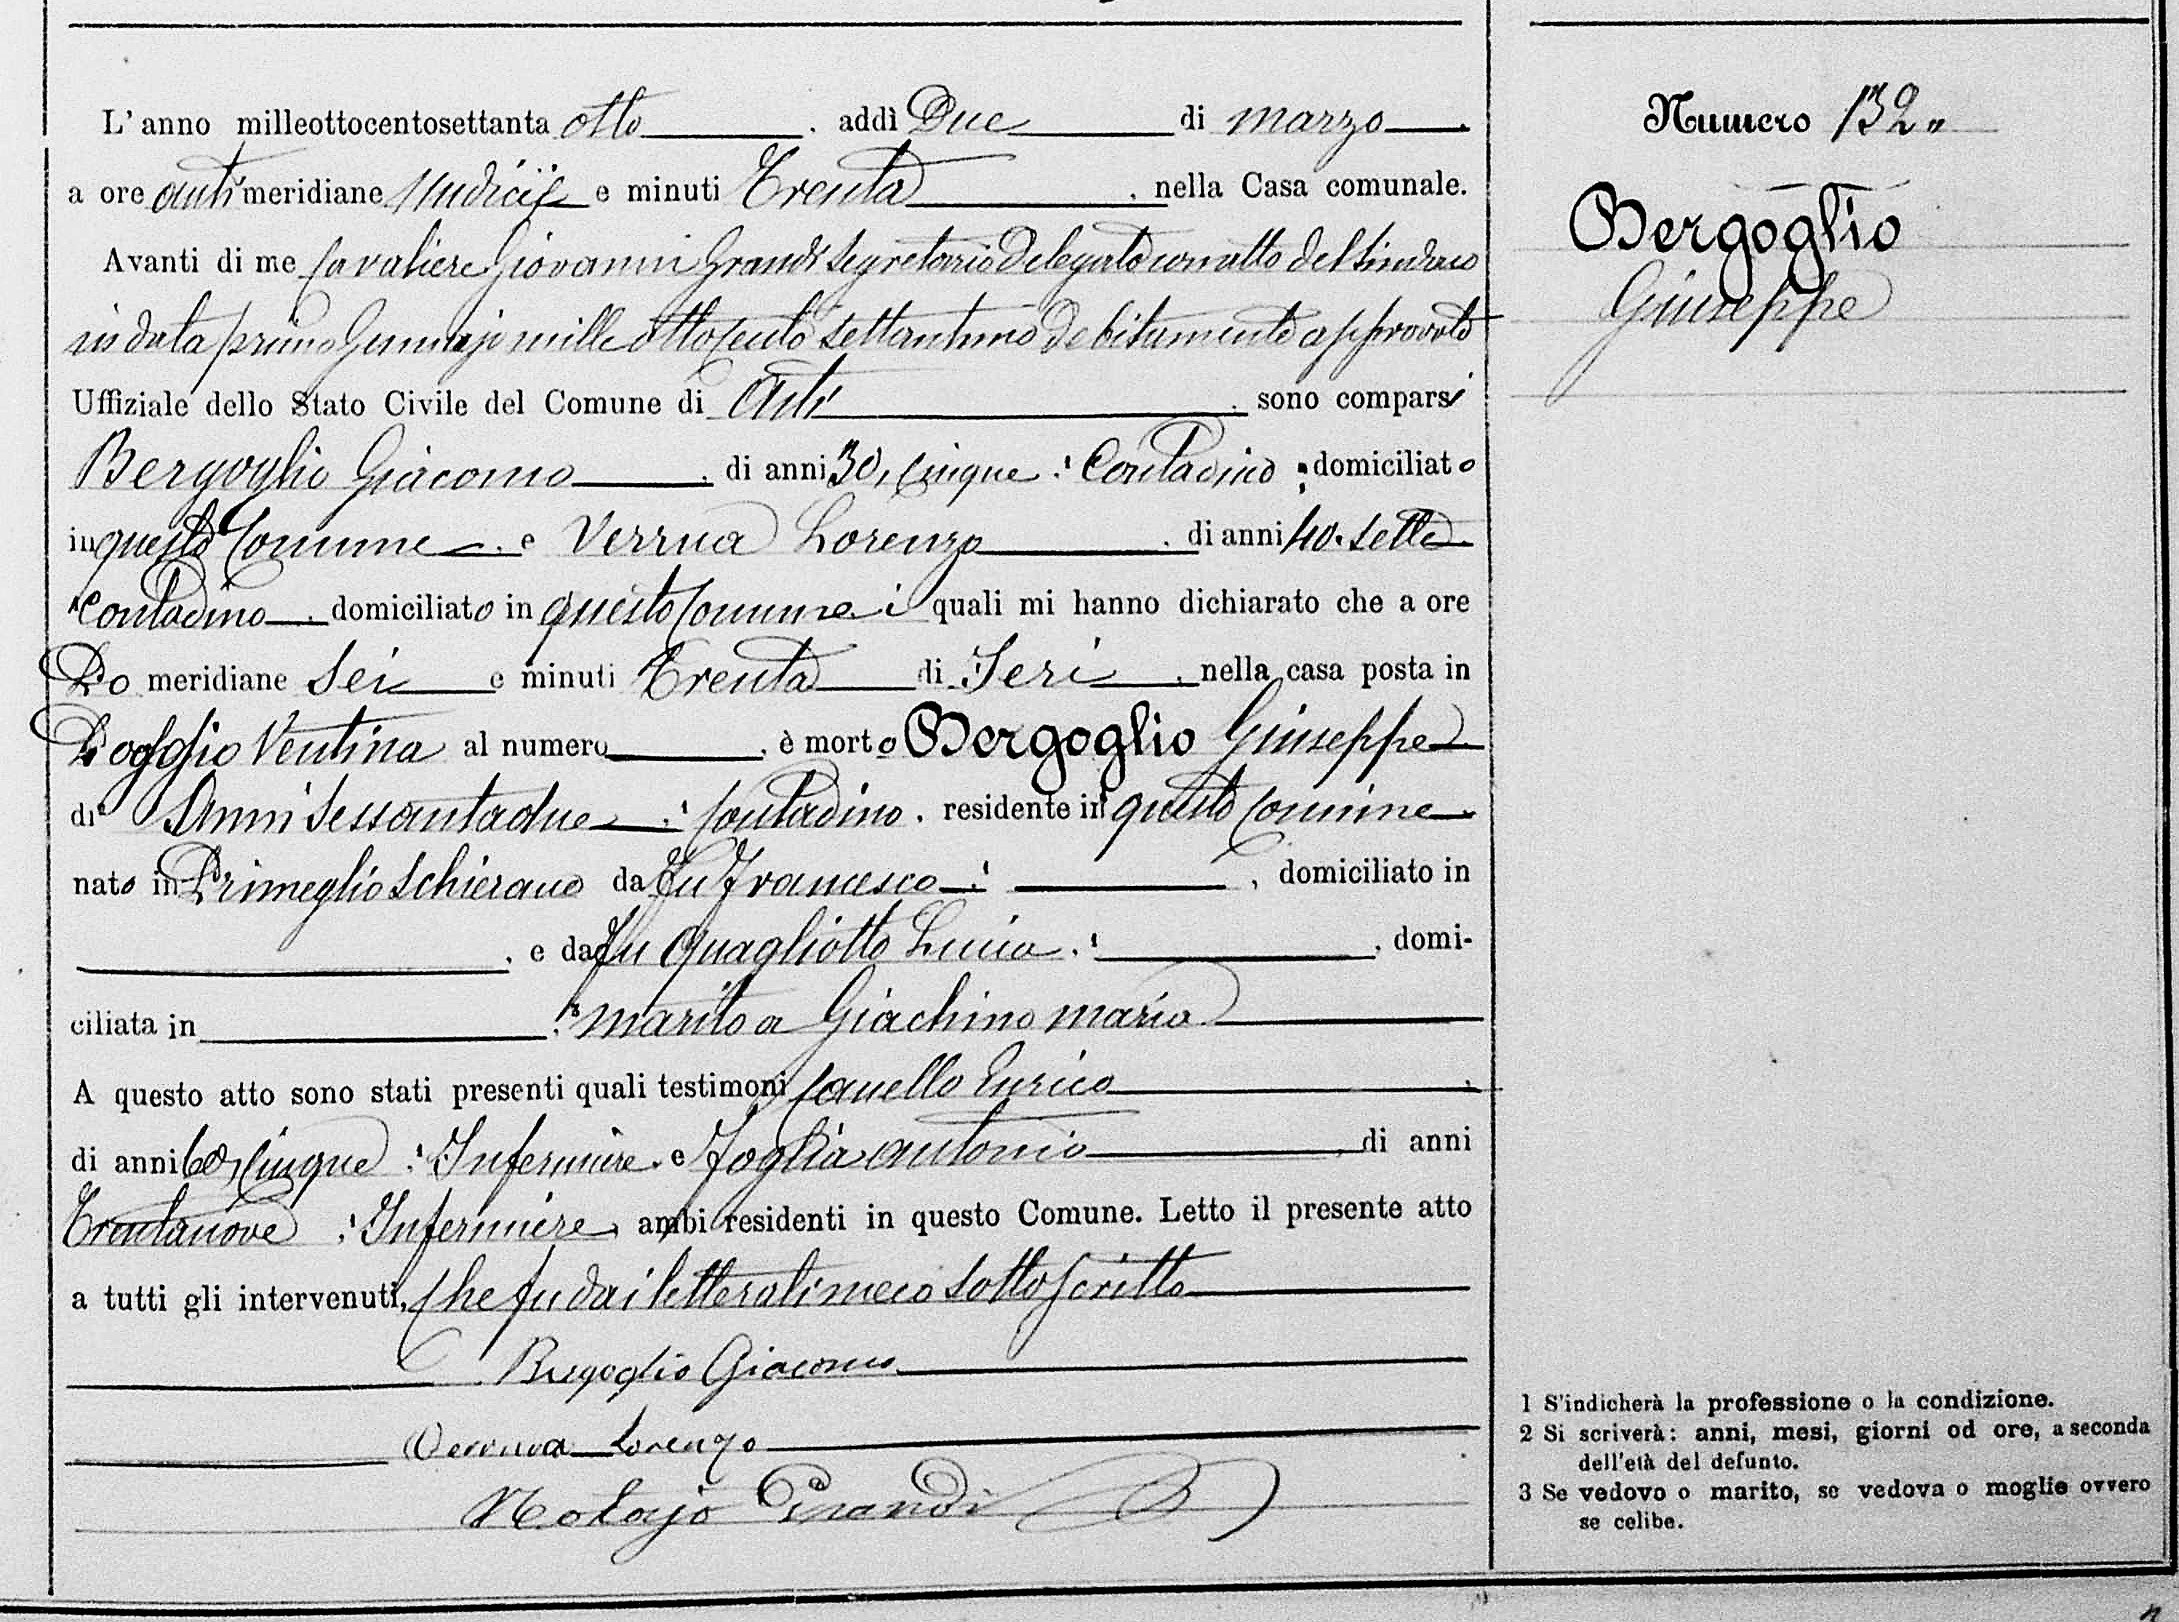 L'anno milleottocentosettanta otto. addì Due di marzo.
a ore anti meridiane Undici e minuti Trenta, nella Casa comunale.
Avanti di me Cavaliere Giovanni Grandi Segretario Delegato con atto del Sindaco
in data primo Gennajo mille ottocento settantuno debitamente approvato
Uffiziale dello Stato Civile del Comune di Asti. sono comparsi
Bergoglio Giacomo, di anni 30, Cinque: Contadino, domiciliato
in questo Comune, e Verrua Lorenzo, di anni 40. Sette
Contadino, domiciliato in questo Comune i quali mi hanno dichiarato che a ore
Po meridiane Sei e minuti Trenta di Ieri, nella casa posta in
Poggio Ventina al numero, è morto Bergoglio Giuseppe
di Anni Sessantadue: Contadino, residente in questo Comune
nato in Primeglio Schierano da fu Francesco:, domiciliato in
, e da fu Quagliotto Lucia:, domi-
ciliata in, marito a Giachino Maria
A questo atto sono stati presenti quali testimoni Canello Enrico
di anni 60, Cinque: Infermiere, e Foglia Antonio, di anni
Trentanove: Infermiere, ambi residenti in questo Comune. Letto il presente atto
a tutti gli intervenuti, Che fu dai letterati meco sottoscritto
Bergoglio Giacomo
Verrua Lorenzo
Notajo Grandi
Numero 132.
Bergoglio
Giuseppe
1 S'indicherà la professione o la condizione.
2 Si scriverà: anni, mesi, giorni od ore, a seconda
dell'età del defunto.
3 Se vedovo o marito, se vedova o moglie ovvero
se celibe.